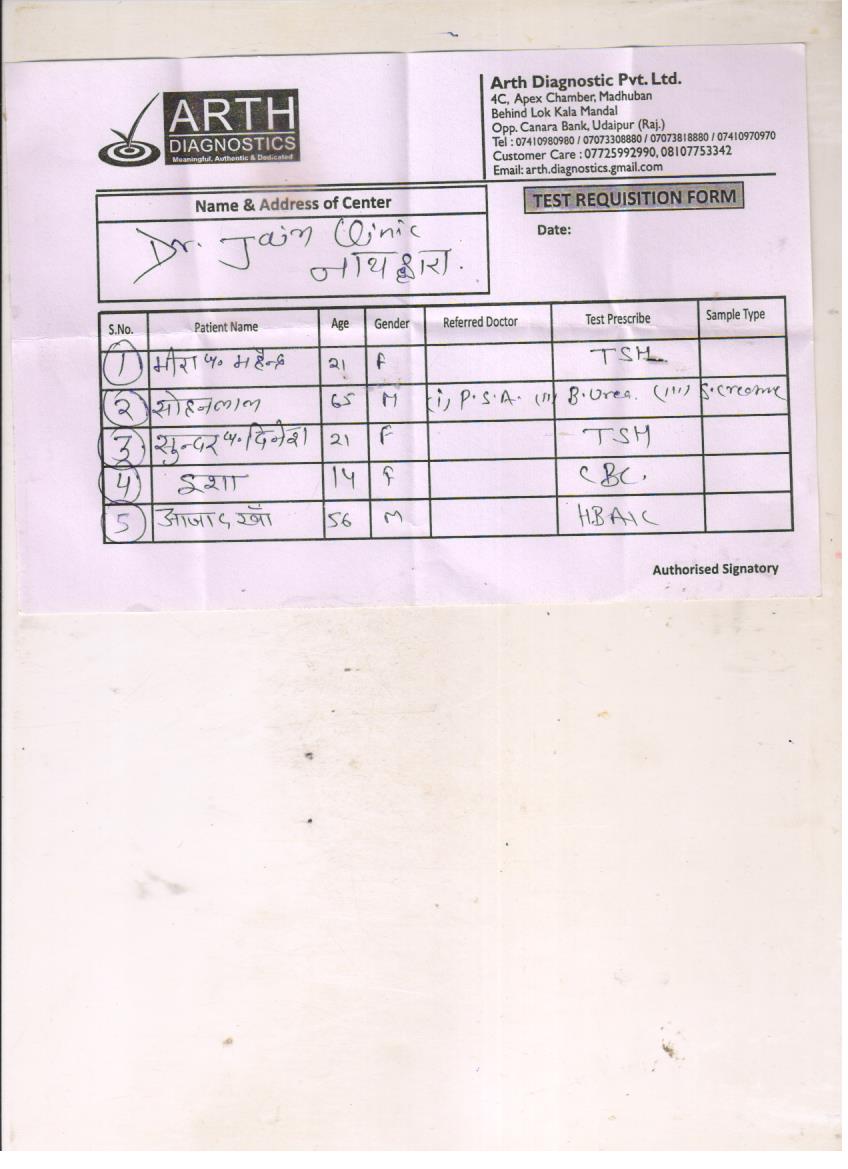 ARTH
DIAGNOSTICS
Meaningful, Authentic & Dedicated
Arth Diagnostic Pvt. Ltd.
4C, Apex Chamber, Madhuban
Behind Lok Kala Mandal
Opp. Canara Bank, Udaipur (Raj.)
Tel : 07410980980 / 07073308880 / 07073818880 / 07410970970
Customer Care : 07725992990, 08107753342
Email: arth.diagnostics.gmail.com
Name & Address of Center
Dr. Jain Clinic
नाथद्वारा.
TEST REQUISITION FORM
Date:
S.No. Patient Name Age Gender Referred Doctor Test Prescribe Sample Type
1 मीरा प. महेन्द्र 21 F TSH
2 सोहनलाल 65 M (i) P.S.A. (ii) B.Urea. (iii)
3 सुन्दर प. दिनेश 21 F TSH
4 इशा 14 F CBC.
5 आजाद खाँ 56 M HBA1C
Authorised Signatory